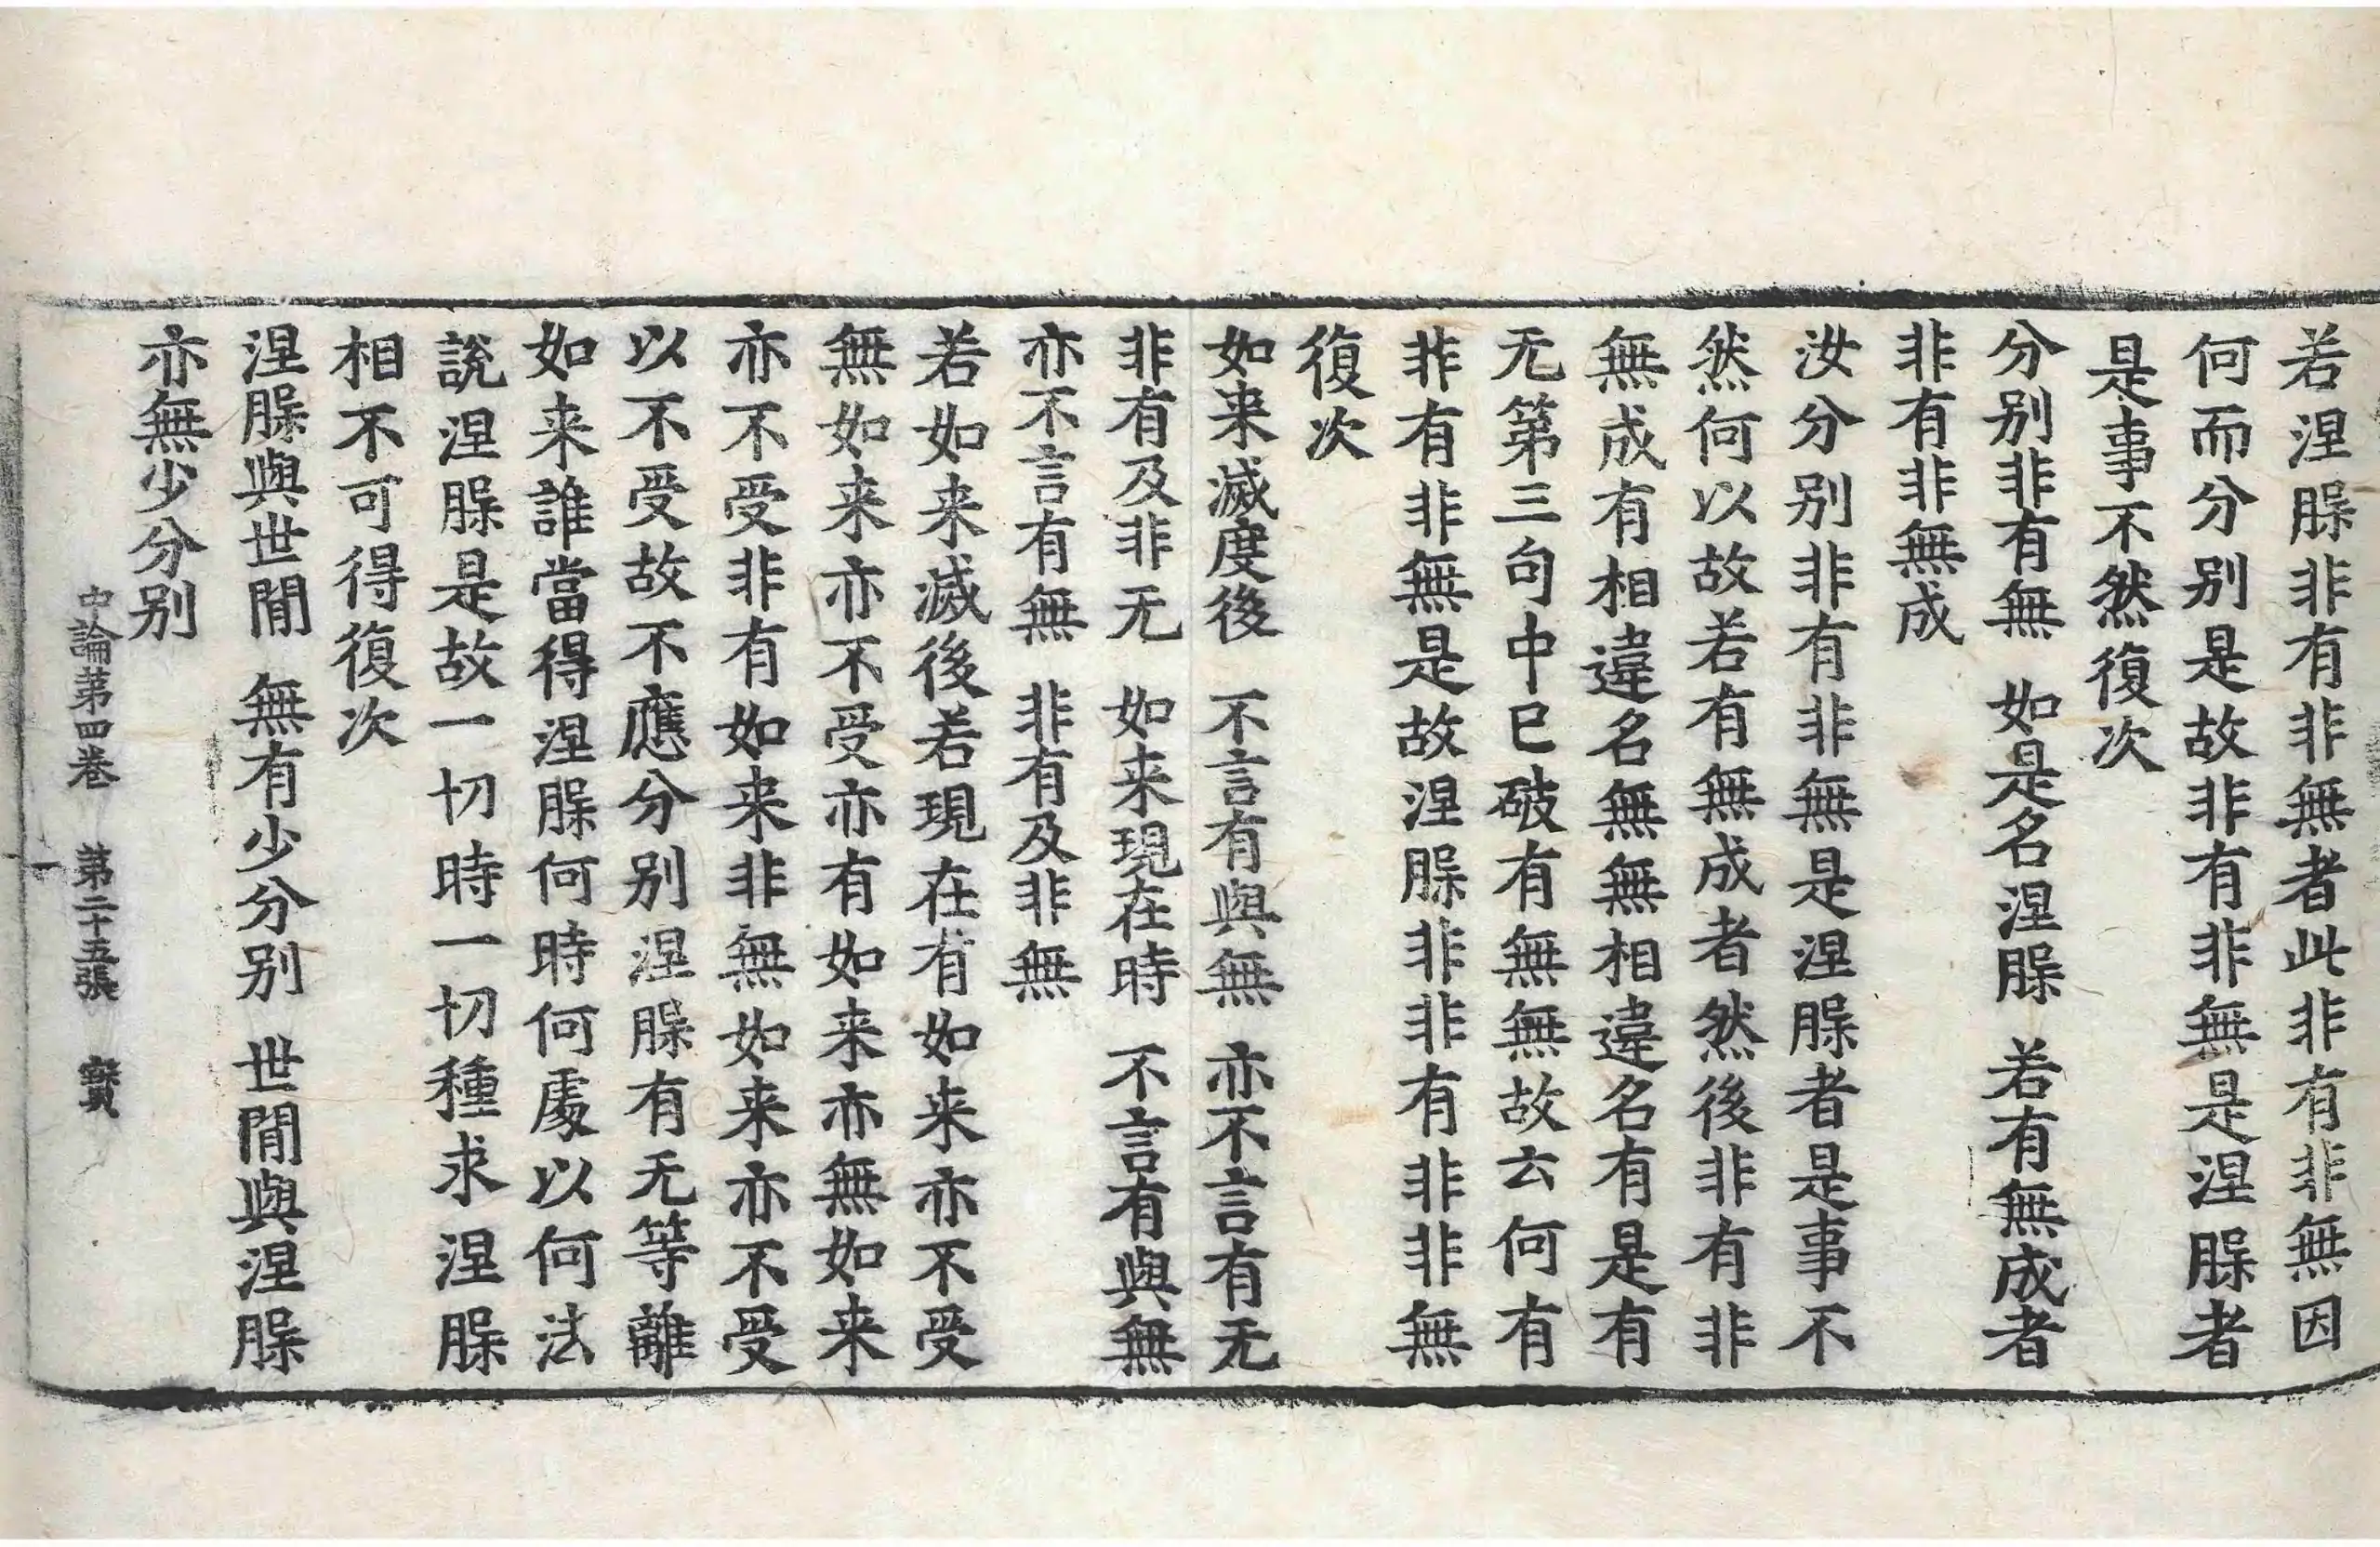 若涅槃非有非無者此非有非無因
何而分別是故非有非無是涅槃者
是事不然復次
分別非有無 如是名涅槃 若有無成者
非有非無成
汝分別非有非無是涅槃者是事不
然何以故若有無成者然後非有非
無成有相違名無無相違名有是有
无第三句中已破有無無故云何有
非有非無是故涅槃非非有非非無
復次
如来滅度後 不言有與無 亦不言有无
非有及非无 如来現在時 不言有與無
亦不言有無 非有及非無
若如来滅後若現在有如来亦不受
無如来亦不受亦有如来亦無如来
亦不受非有如来非無如来亦不受
以不受故不應分別涅槃有无等離
如来誰當得涅槃何時何處以何法
說涅槃是故一切時一切種求涅槃
相不可得復次
涅槃與世間 無有少分別 世間與涅槃
亦無少分別
中論第四卷 第二十五張 寶